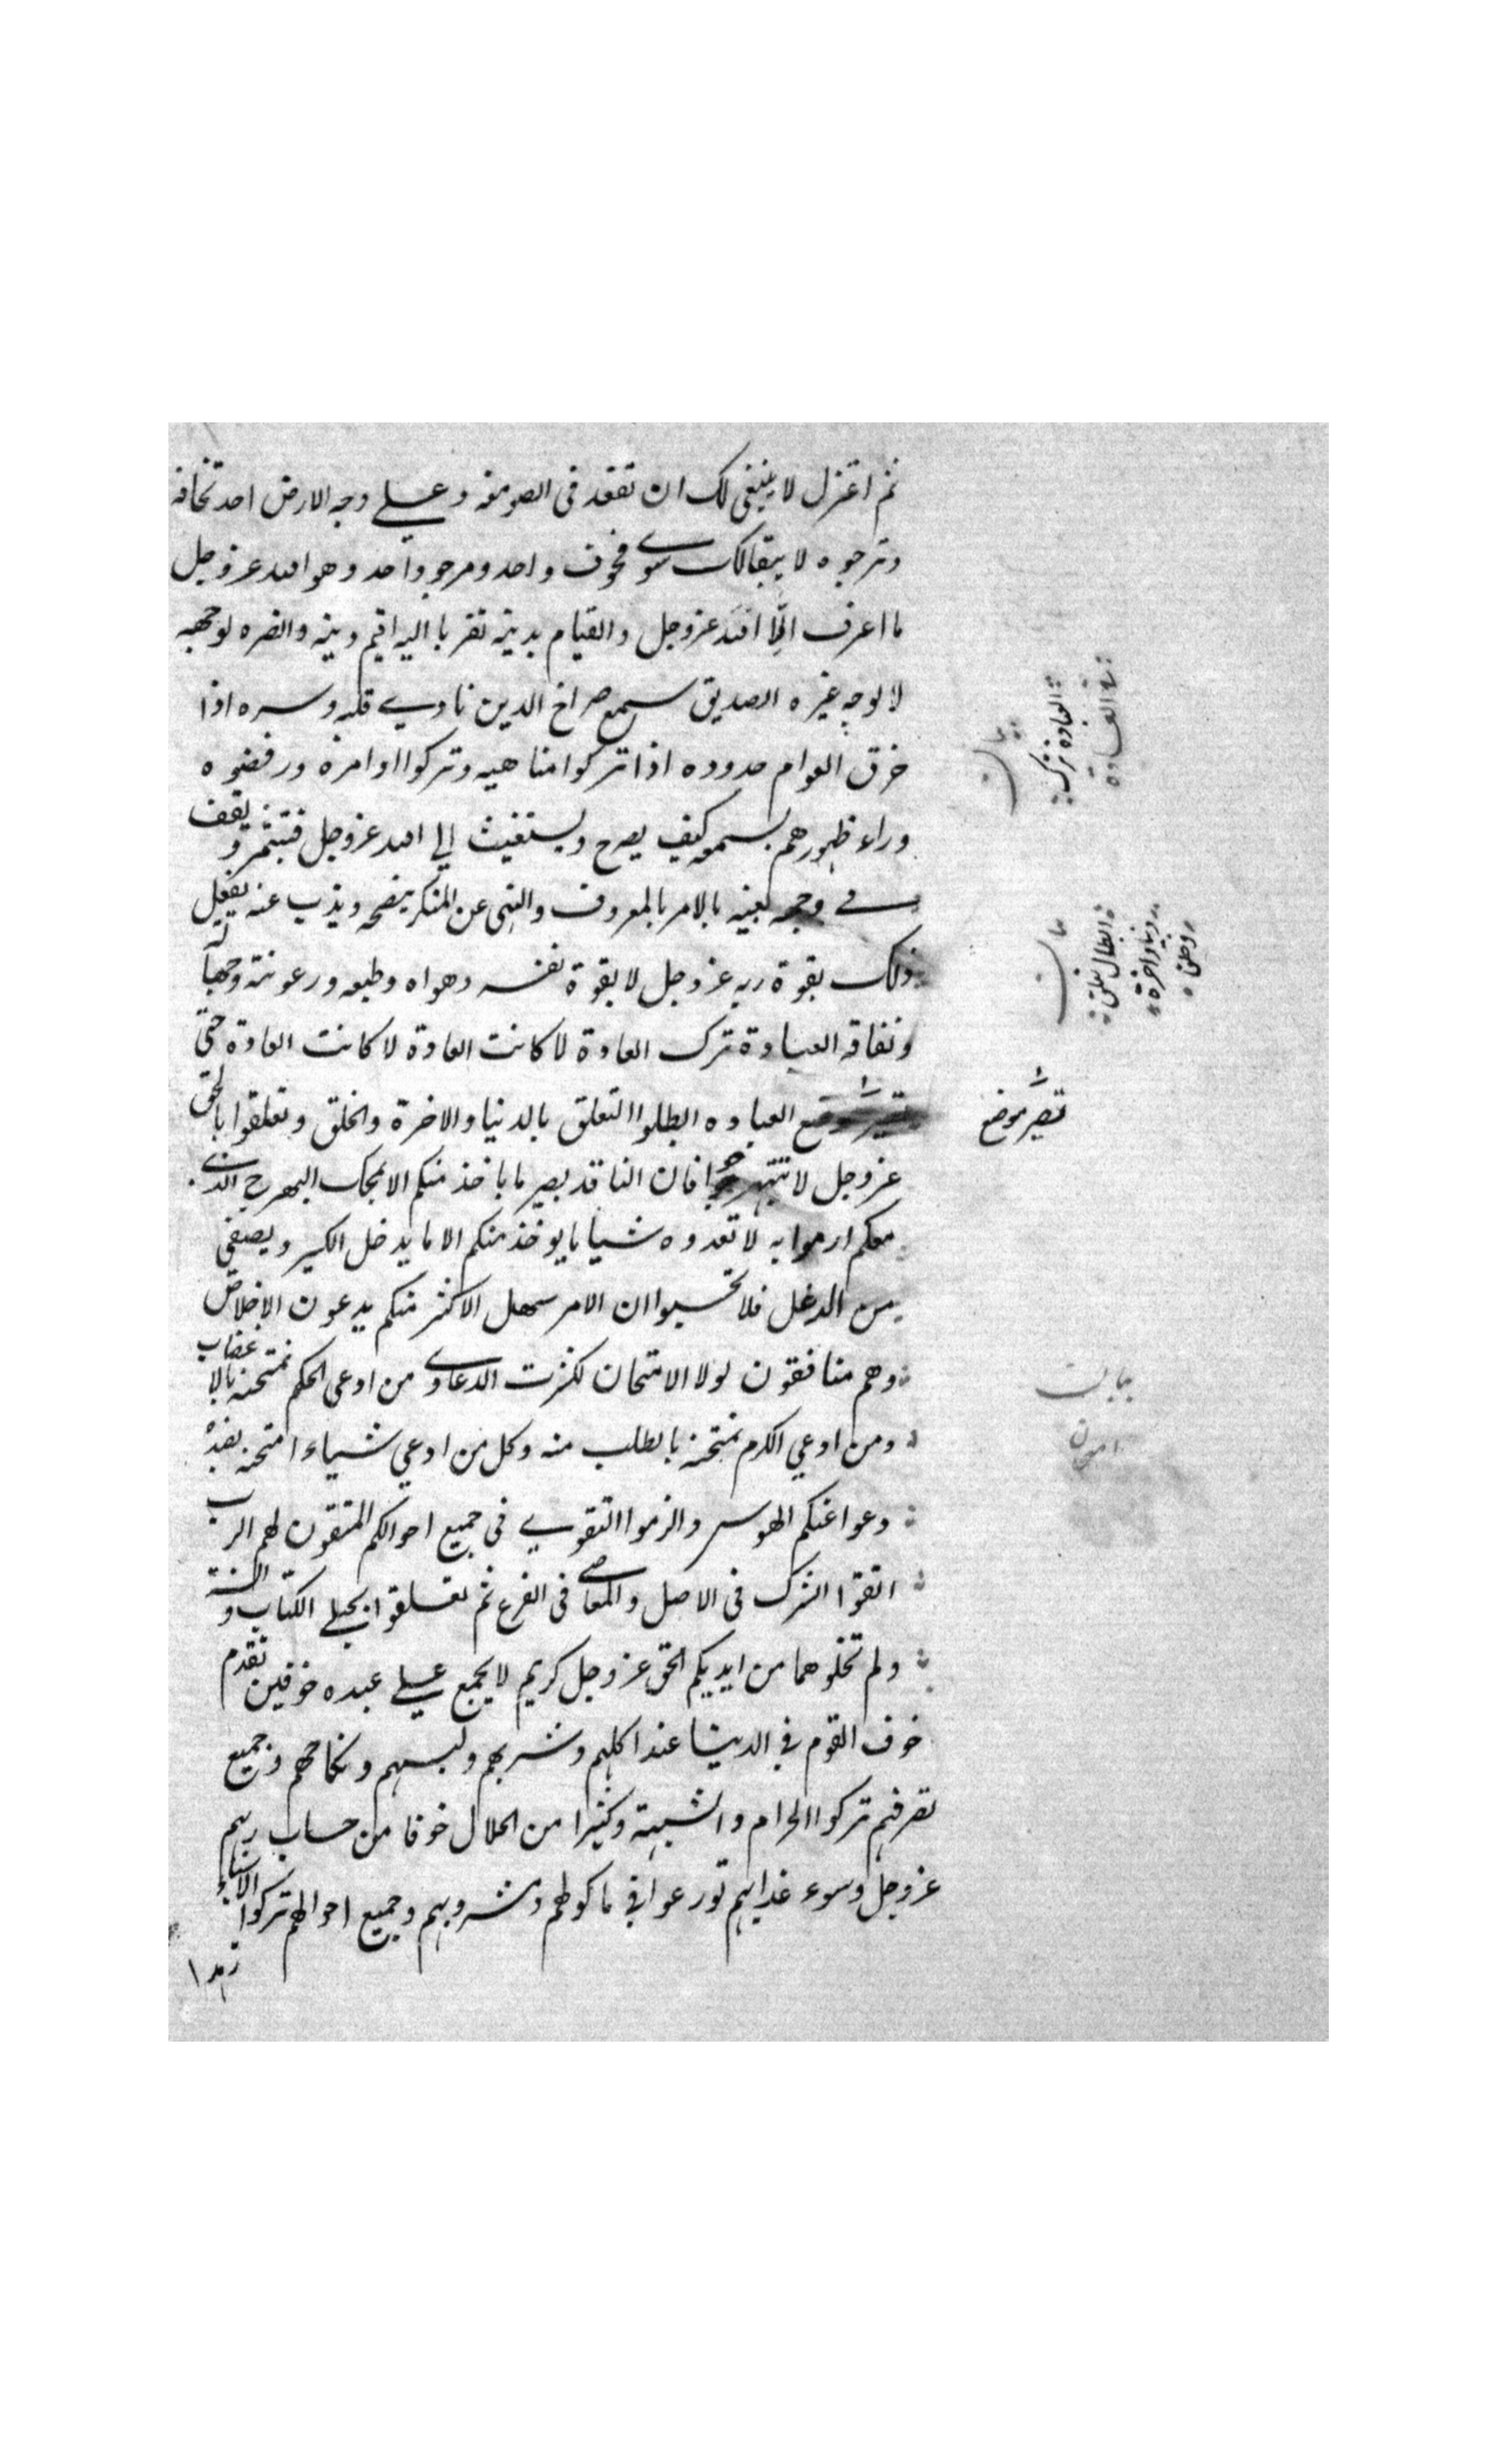 ثم اعتزل لا ينبغى لك ان تقعد فى الصومعة وعلى وجه الارض احد تخافه
وترجوه لا يبقا لك سوى مخوف واحد ومرجو واحد وهو الله عزوجل
ما اعرف الا الله عزوجل والقيام بدينه تقربا اليه اقيم دينه وانصره لوجهه
لا لوجه غيره الصديق سمع صراخ الدين نادى قلبه وسره اذا
خرق العوام حدوده اذا تركوا مناهيه وتركوا اوامره ورفضوه
وراء ظهورهم يسمعه كيف يصرح ويستغيث الى الله عزوجل فيتشمر ويقف
فى وجهه يعينه بالامر بالمعروف والنهى عن المنكر ينصحه ويذب عنه يفعل
ذلك بقوة ربه عزوجل لا بقوة نفسه وهواه وطبعه ورعونته وجهله
ونفاقه العبادة ترك العادة لا كانت العادة لا كانت العادة حتى
تصير موضع العباده ابطلوا التعلق بالدنيا والاخرة والخلق وتعلقوا بالحق
عزوجل لا تتبهرجوا فان الناقد بصير ما ياخذ منكم الا بمحك البهرج الذى
معكم ارموا به لا تعدوه شيا ما يوخذ منكم الا ما يدخل الكير ويصفى
من الدغل فلا تحسبوا ان الامر سهل الاكثر منكم يدعون الاخلاص
وهم منافقون لولا الامتحان لكثرت الدعاوى من ادعى الحكم نمتحنه بالاغضاب
ومن ادعي الكرم نمتحنه بالطلب منه وكل من ادعي شياء امتحنه بضده
دعوا عنكم الهوس والزموا التقوى فى جميع احوالكم المتقون لهم الرب
اتقوا الشرك فى الاصل والمعاصى فى الفرع ثم تعلقوا بحبلى الكتاب والسنة
ولم تخلوهما من ايديكم الحق عزوجل كريم لا يجمع على عبده خوفين تقدم
خوف القوم فى الدنيا عند اكلهم وشربهم ولبسهم ونكاحهم وجميع
تصرفهم تركوا الحرام والشبهة وكثيرا من الحلال خوفا من حساب ربهم
عزوجل وسوء عذابهم تورعوا فى ماكولهم ومشروبهم وجميع احوالهم تركوا الاشياء
زهدا
العبادة ترك
العادة
بيان
ابطال تعلق
دنيا واخرة
وخلق
تصير موضع